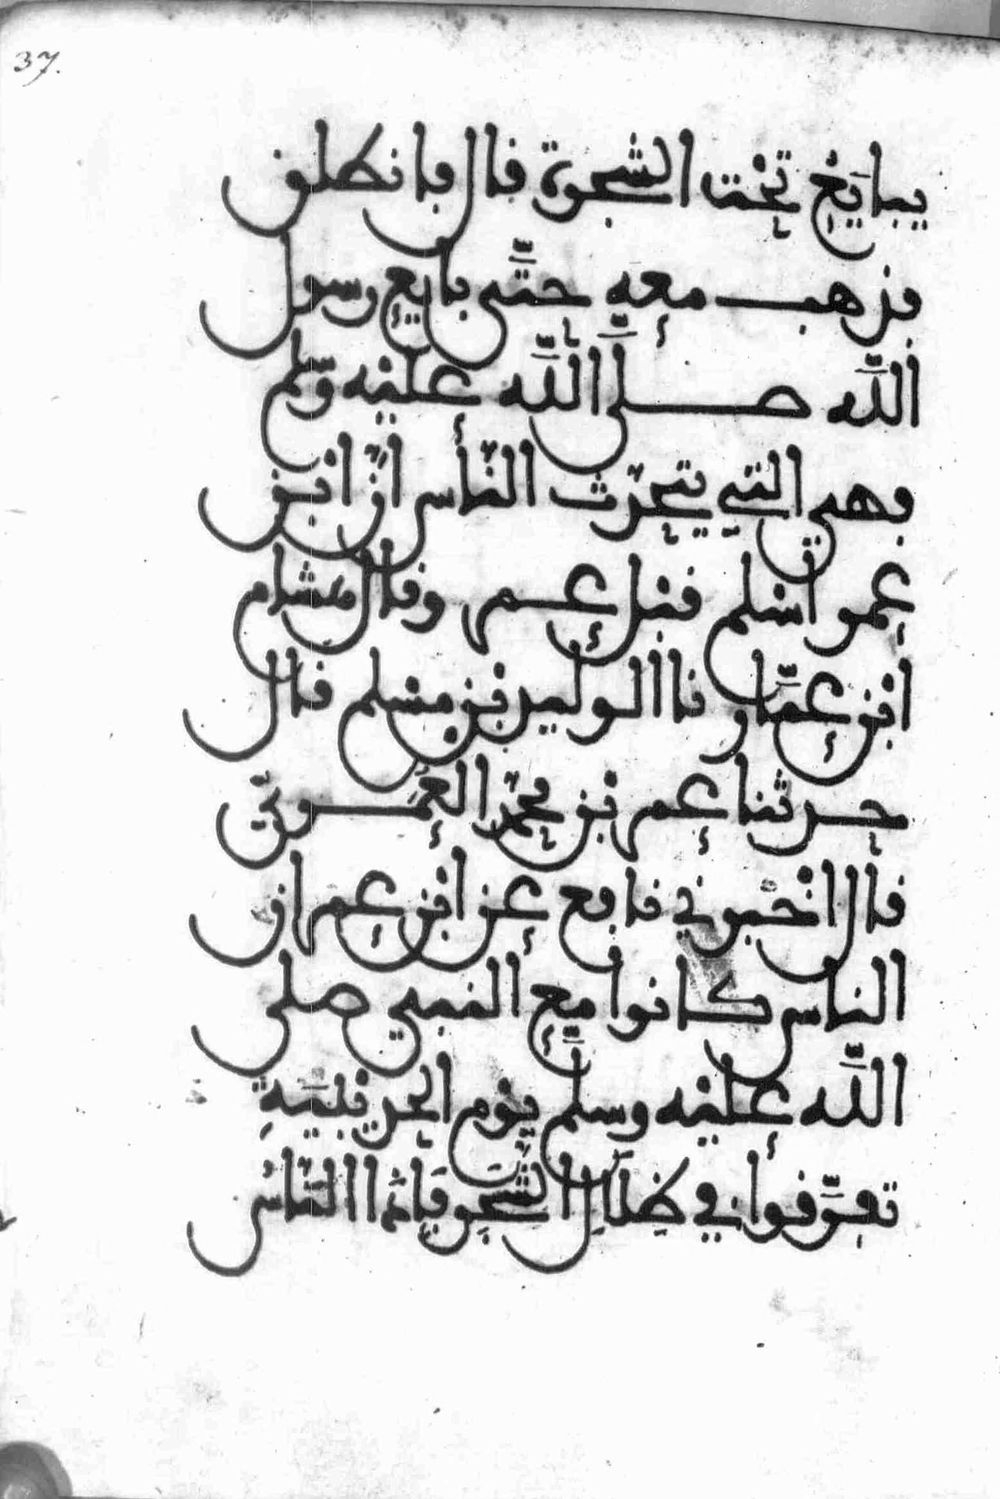 37.
يبايع تحت الشجرة قال فانطلق
فذهب معه حتَّى بايع رسول
اللَّه صلَّى اللَّه عليْه وسلّم
فهي التي يتحدّث النّاس أنّ ابْن
عمر أسْلم قبْل عمر وقال هشام
ابْن عمَّار نا الوليد بْن مسْلم قال
حدثنا عمر بْن محمّد العُمَريّ
قال اخْبرني نافع عن ابْن عمر ان
الناس كانوا مع النبي صلى
اللَّه عليْه وسلَّم يوْم الحديْبيَةِ
تفرَّقوا في ظِلَالِ الشَّجَر فَإذا النَّاسُ